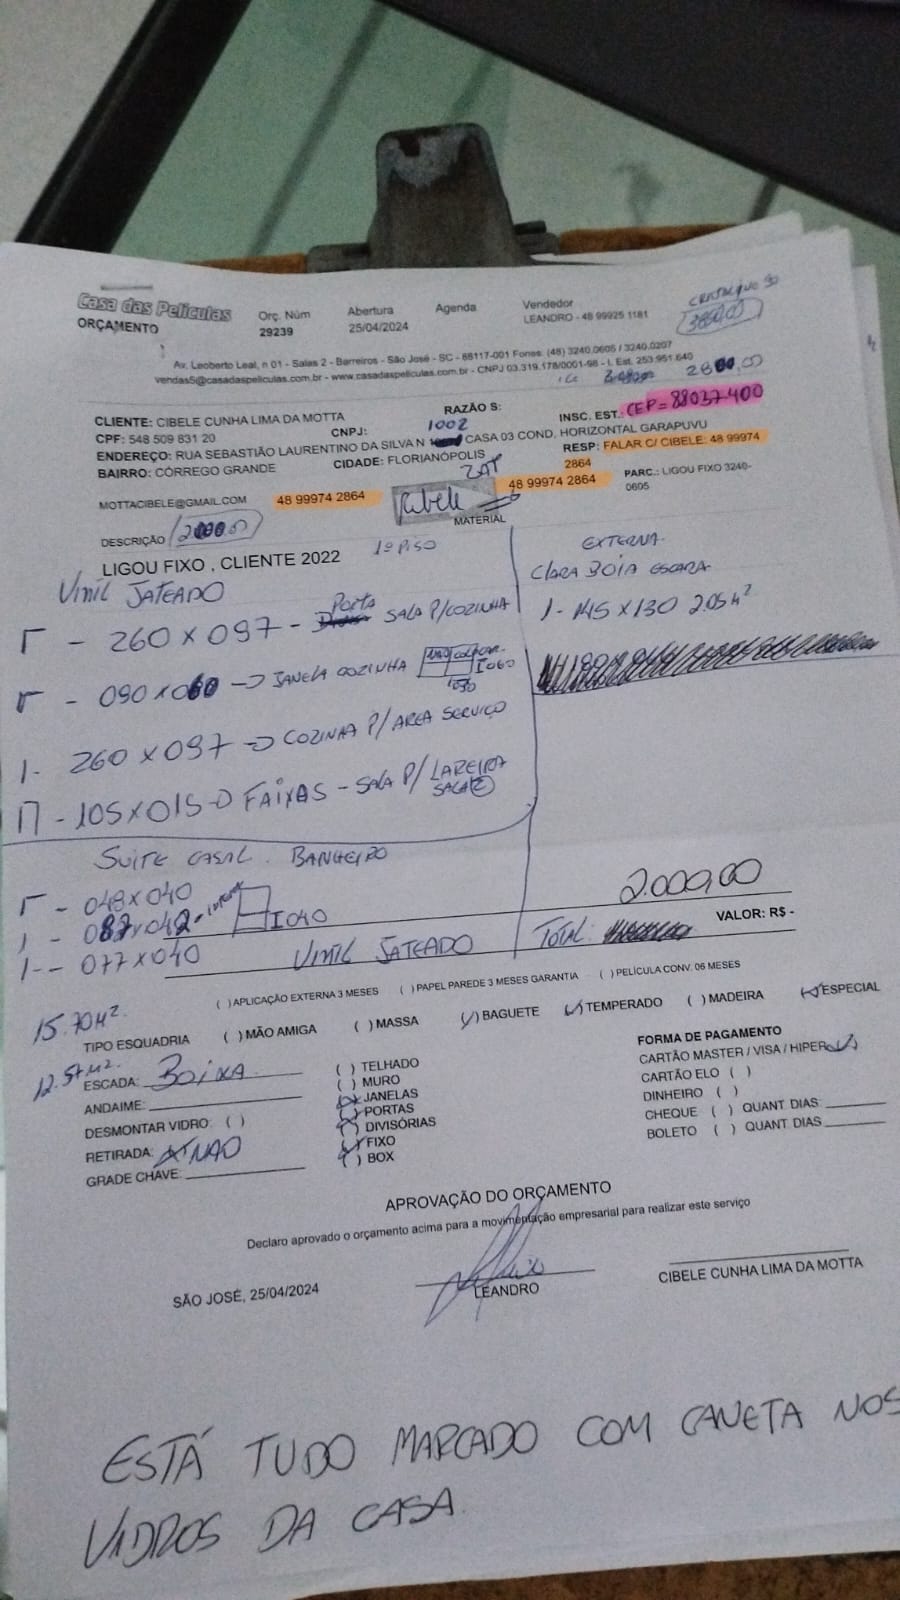 Casa das Películas
ORÇAMENTO
Orç. Núm
29239
Abertura
25/04/2024
Agenda
Vendedor
LEANDRO - 48 99925 1181
Av. Leoberto Leal, n 01 - Salas 2 - Barreiros - São José - SC - 88117-001 Fones: (48) 3240.0605 / 3240.0207
vendas5@casadaspeliculas.com.br - www.casadaspeliculas.com.br - CNPJ 03.319.178/0001-98 - I. Est. 253.951.640
CLIENTE: CIBELE CUNHA LIMA DA MOTTA
RAZÃO S:
INSC. EST.: CEP = 88037-400
CPF: 548 509 831 20
CNPJ: 1002
ENDEREÇO: RUA SEBASTIÃO LAURENTINO DA SILVA N CASA 03 COND. HORIZONTAL GARAPUVU
BAIRRO: CÓRREGO GRANDE
CIDADE: FLORIANÓPOLIS
RESP: FALAR C/ CIBELE: 48 99974
2864
ZAP
MOTTACIBELE@GMAIL.COM
48 99974 2864
Cibele
48 99974 2864
PARC.: LIGOU FIXO 3240-
0605
DESCRIÇÃO 2000,00
MATERIAL
LIGOU FIXO , CLIENTE 2022
1º PISO
VINIL JATEADO
- 260 X 097 - PORTA SALA P/COZINHA
- 090 X 060 → JANELA COZINHA
1- 260 X 097 → COZINHA P/ AREA SERVIÇO
- 105 X 015 → FAIXAS - SALA P/ LAREIRA
SALA 2
EXTERNA
CLARA BOIA ESCARA
1- 145 X 130 2.05 M²
SUITE CASAL. BANHEIRO
- 048 X 040
1 - 087 X 042
I040
1-- 077 X 040
VINIL JATEADO
2.000,00
TOTAL:
VALOR: R$ -
( ) APLICAÇÃO EXTERNA 3 MESES ( ) PAPEL PAREDE 3 MESES GARANTIA ( ) PELÍCULA CONV. 06 MESES
15.70 M².
TIPO ESQUADRIA ( ) MÃO AMIGA ( ) MASSA (✓) BAGUETE (✓) TEMPERADO ( ) MADEIRA (✓) ESPECIAL
12.57 M².
ESCADA: BAIXA
ANDAIME:
DESMONTAR VIDRO: ( )
RETIRADA: (X) NÃO
GRADE CHAVE:
( ) TELHADO
( ) MURO
(X) JANELAS
(X) PORTAS
(X) DIVISÓRIAS
(X) FIXO
( ) BOX
FORMA DE PAGAMENTO
CARTÃO MASTER / VISA / HIPER (✓)
CARTÃO ELO ( )
DINHEIRO ( )
CHEQUE ( ) QUANT DIAS:
BOLETO ( ) QUANT DIAS
APROVAÇÃO DO ORÇAMENTO
Declaro aprovado o orçamento acima para a movimentação empresarial para realizar este serviço
SÃO JOSÉ, 25/04/2024
LEANDRO
CIBELE CUNHA LIMA DA MOTTA
ESTÁ TUDO MARCADO COM CANETA NOS
VIDROS DA CASA.